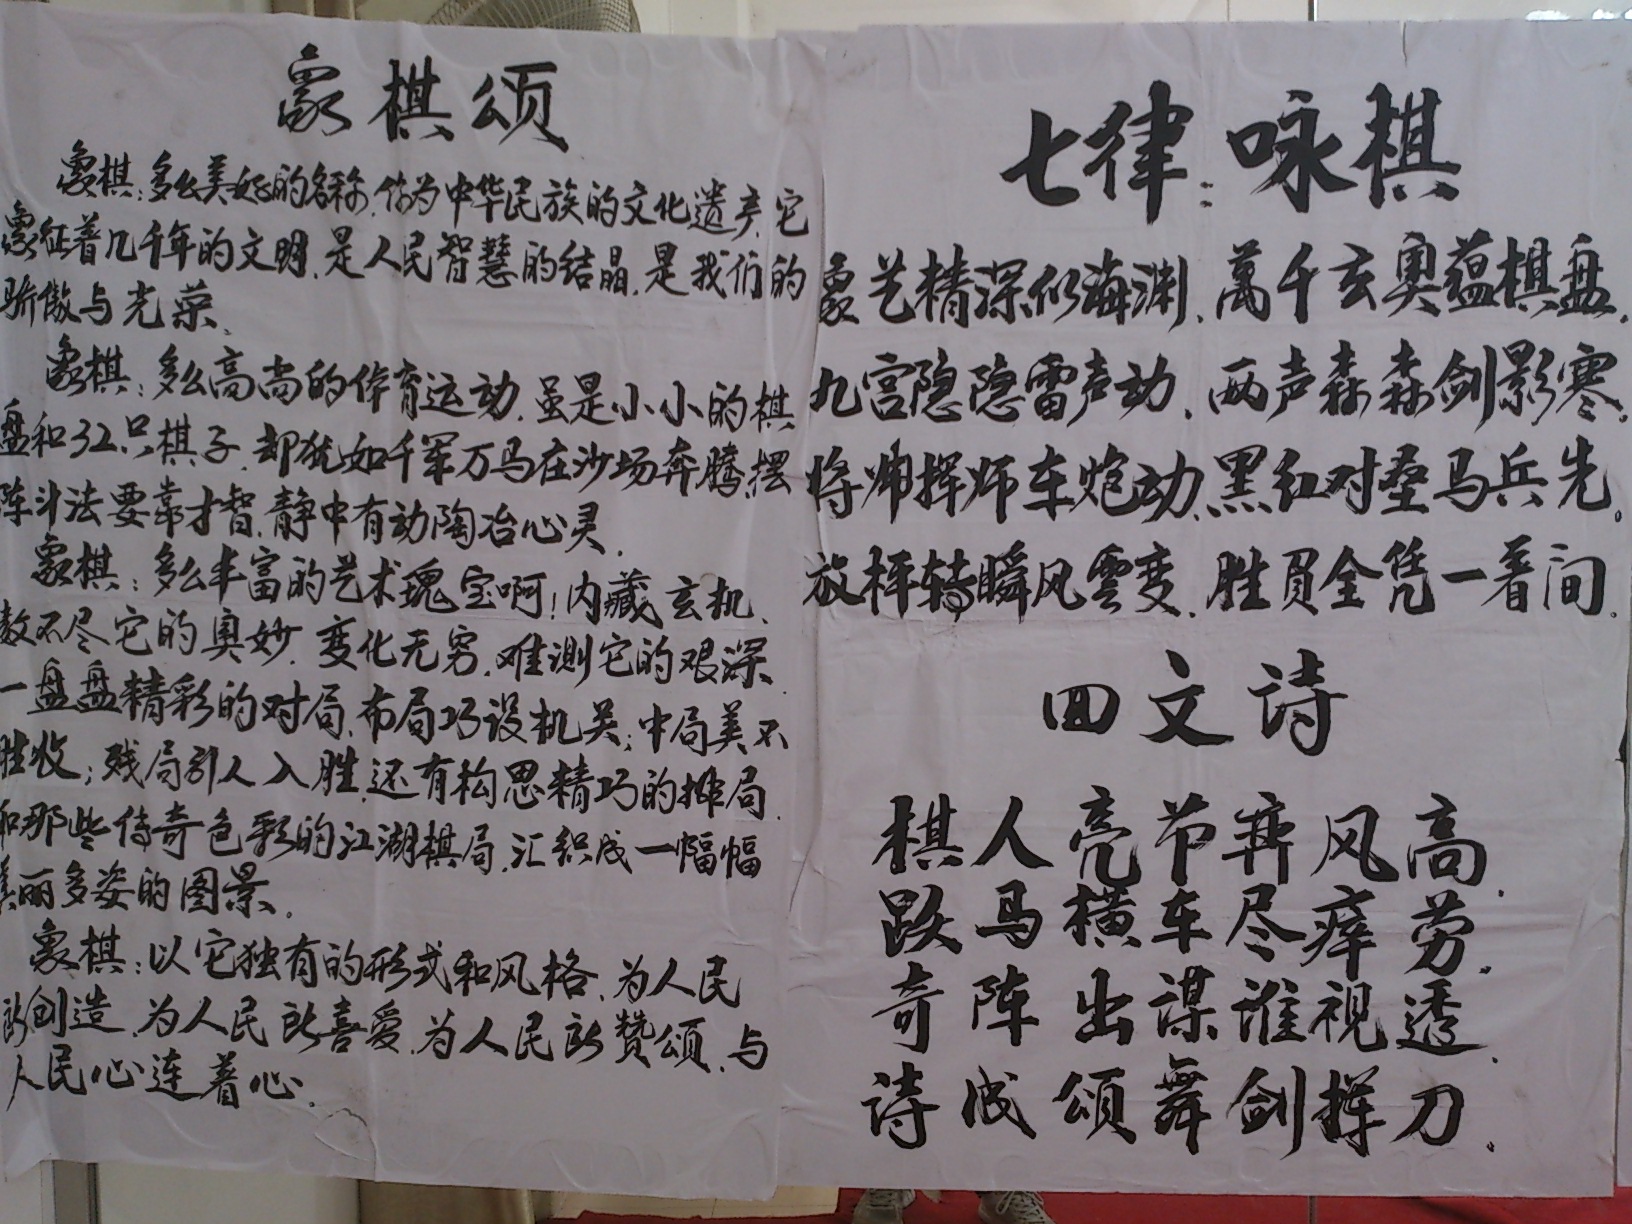 象棋颂
象棋：多么美好的名称，作为中华民族的文化遗产，它
象征着几千年的文明，是人民智慧的结晶，是我们的
骄傲与光荣，
象棋：多么高尚的体育运动，虽是小小的棋
盘和32只棋子，却犹如千军万马在沙场奔腾，摆
阵斗法要靠才智，静中有动陶冶心灵，
象棋：多么丰富的艺术瑰宝啊！内藏玄机、
数不尽它的奥妙，变化无穷，难测它的艰深，
一盘盘精彩的对局，布局巧设机关；中局美不
胜收；残局引人入胜，还有构思精巧的排局，
和那些传奇色彩的江湖棋局，汇织成一幅幅
美丽多姿的图景，
象棋：以它独有的形式和风格，为人民
所创造，为人民所喜爱，为人民所赞颂，与
人民心连着心，
七律：咏棋
象艺精深似海渊，萬千玄奥蕴棋盘，
九宫隐隐雷声动，两声森森剑影寒，
将帅挥师车炮动，黑红对垒马兵先。
放枰转瞬风雲变，胜负全凭一着间，
回文诗
棋人亮节弈风高，
跃马横车尽瘁劳，
奇阵出谋谁视透，
诗成颂舞剑挥刀，